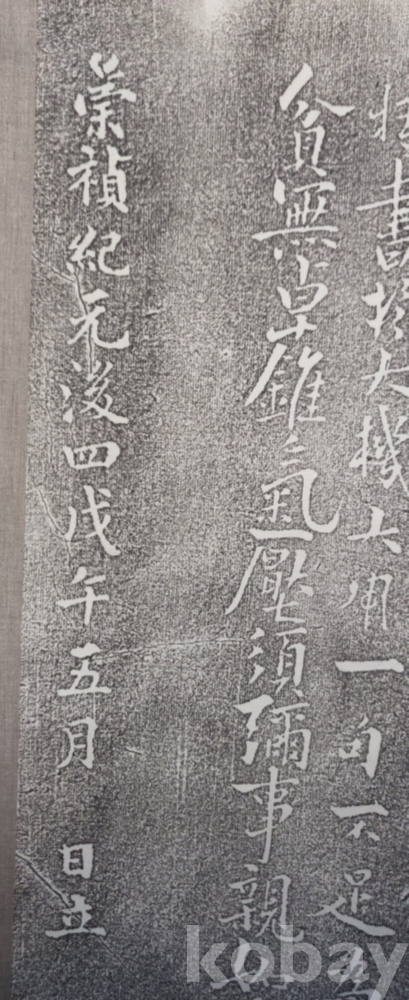 特書於大機大用一句不足爲
貧無卓錐氣壓須彌事親如
崇禎紀元後四戊午五月　日立
kobay